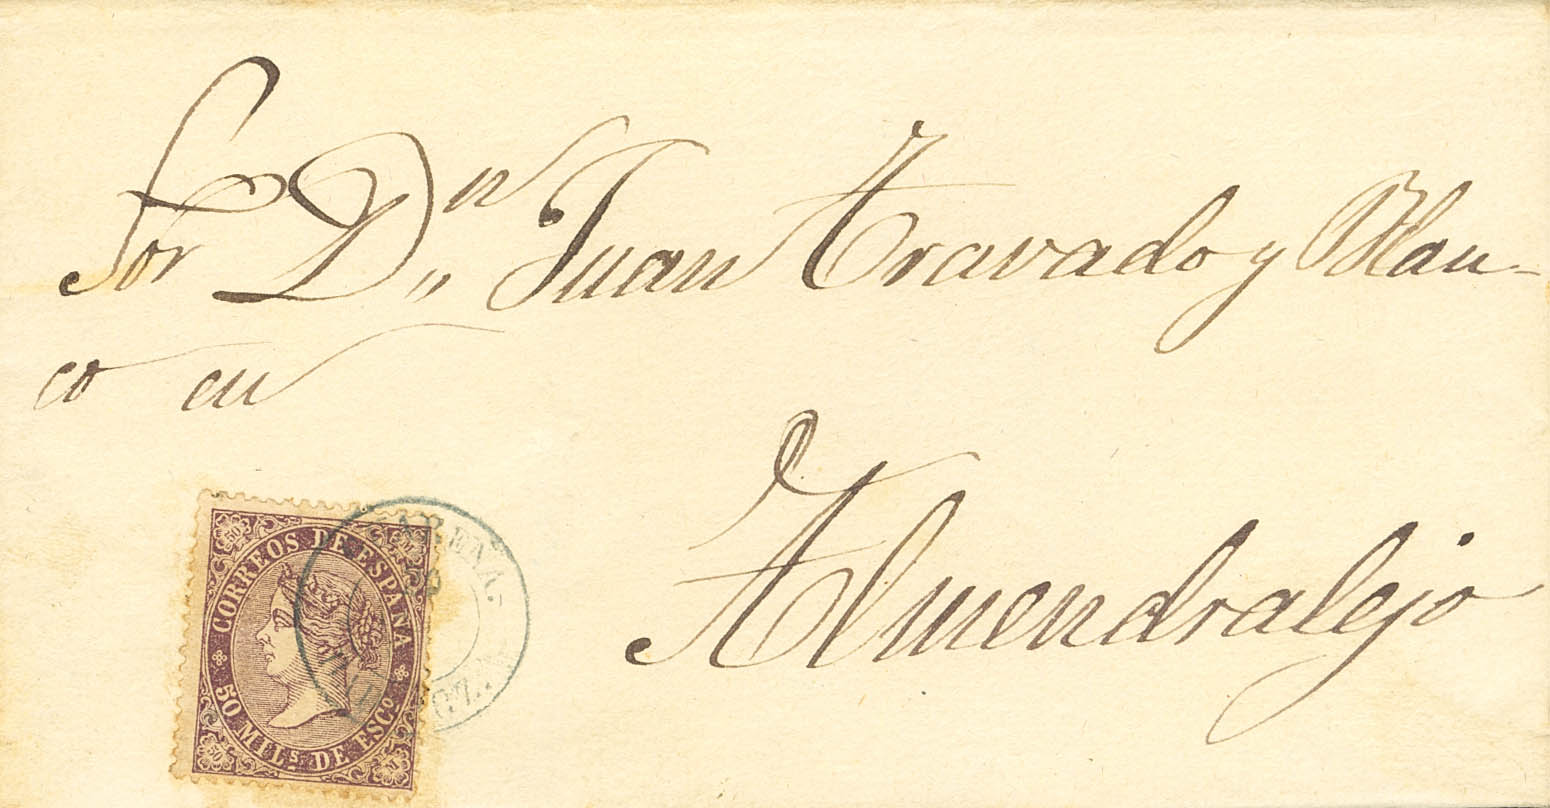 Sor Dn Juan Travado y Blan-
co en
Almendralejo
CORREOS DE ESPAÑA
50 MILs DE ESCo
50